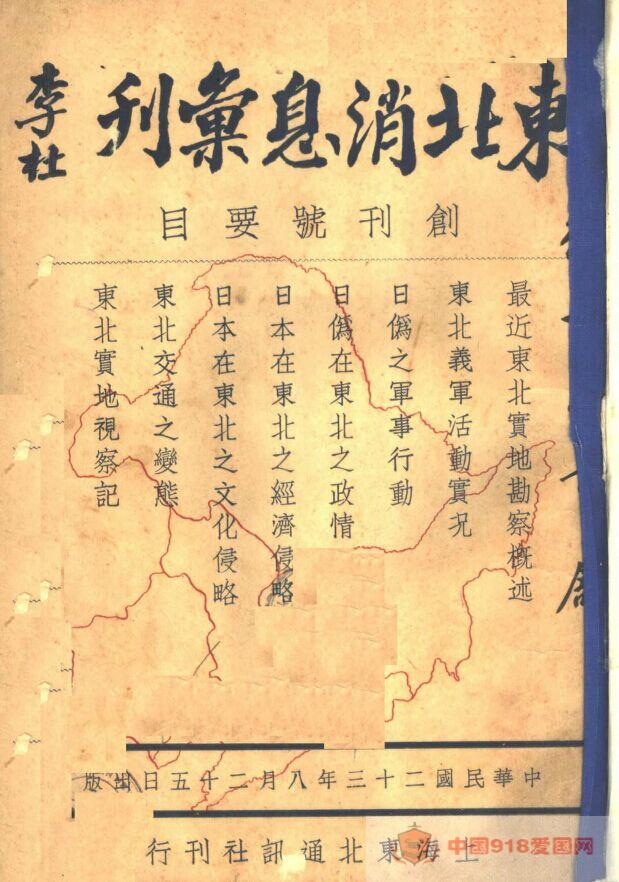 東北消息彙刊
李杜
創刊號要目
最近東北實地勘察概述
東北義軍活動實況
日僞之軍事行動
日僞在東北之政情
日本在東北之經濟侵略
日本在東北之文化侵略
東北交通之變態
東北實地視察記
中華民國二十三年八月二十五日出版
上海東北通訊社刊行
中国918爱国网